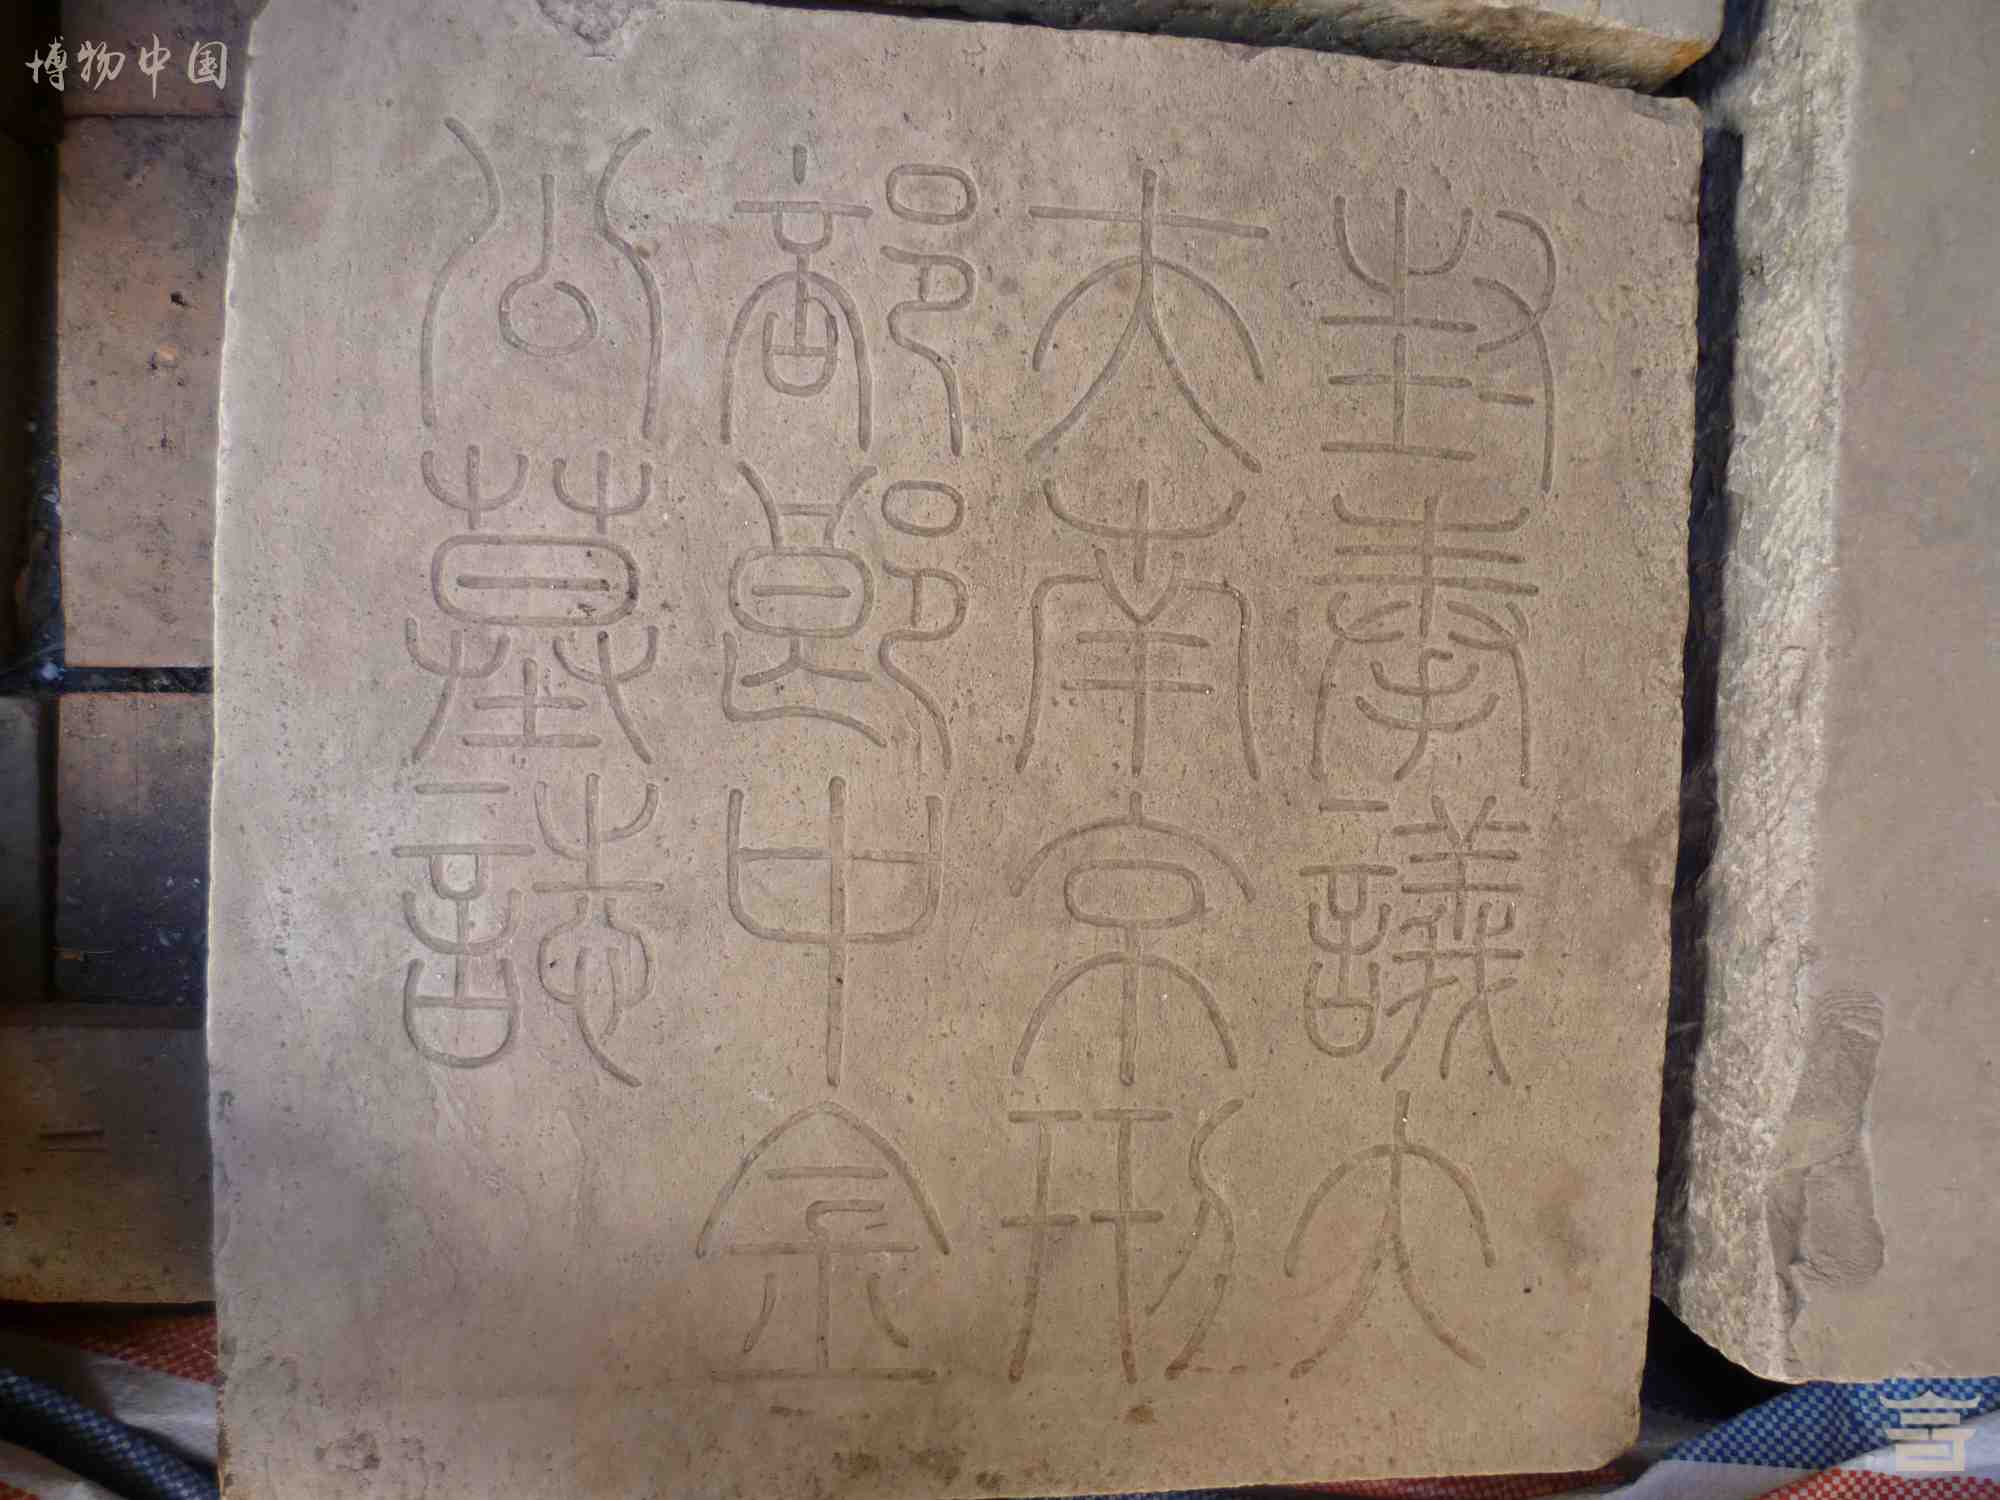 封奉議大
夫南京刑
部郎中金
公墓誌
博物中国